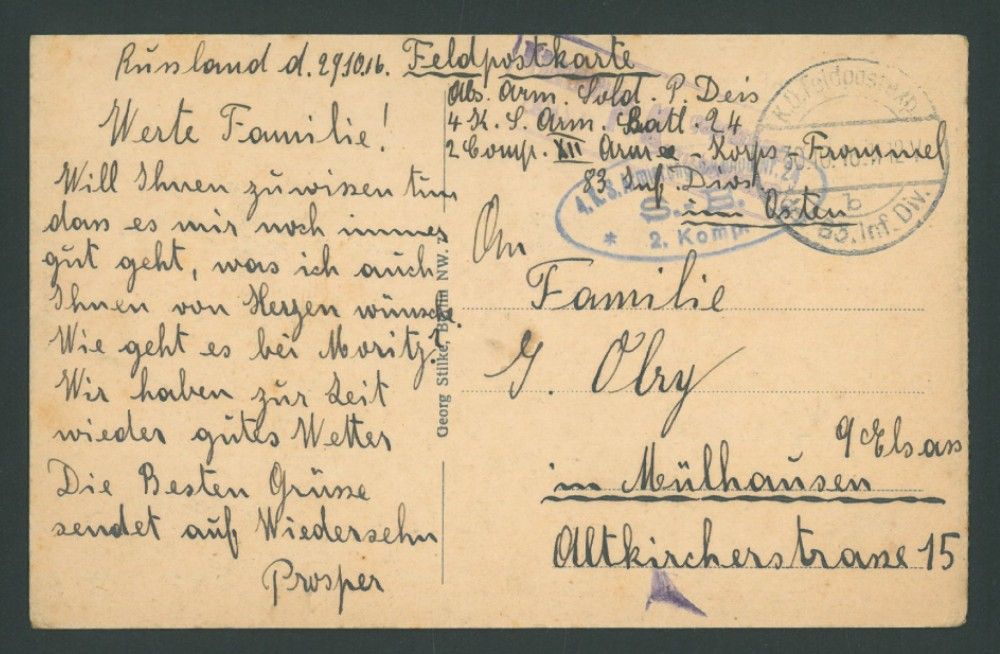 Russland d. 29.10.16. Feldpostkarte
Werte Familie!
Will Ihnen zu wissen tun
dass es mir noch immer
gut geht, was ich auch
Ihnen von Herzen wünsche.
Wie geht es bei Moritz?
Wir haben zur Zeit
wieder gutes Wetter
Die Besten Grüsse
sendet auf Wiedersehn
Prosper
Georg Stilke, Berlin NW. 7
Abs. Arm. Sold. P. Deis
4 K. S. Arm. Batl. 24
2 Comp. XII Armee-Korps-Frommel
83 Inf. Divs.
im Osten
K.D. Feldpostexp.
b
83. Inf. Div.
4. K. S. Armierungs Nr. 24
S. B.
* 2. Komp.
An
Familie
J. Olry
in Mülhausen
Elsass
Altkircherstrasse 15